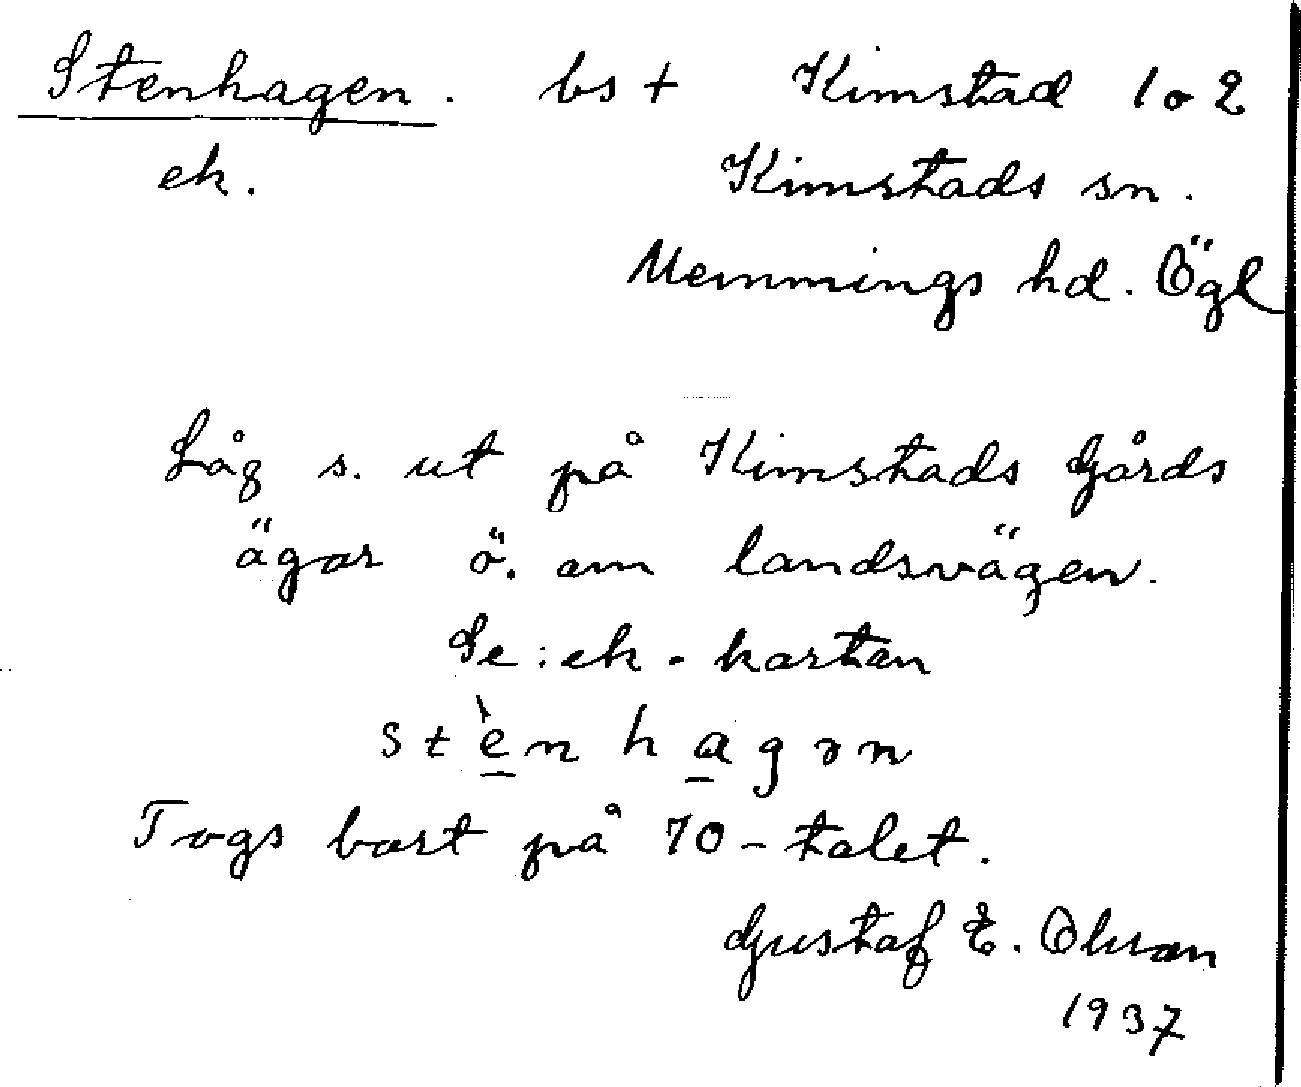 Stenhagen. bs † Kimstad 1 o 2
ek. Kimstads sn.
Memmings hd. Ögl
Låg s. ut på Kimstads Gårds
ägor ö. om landsvägen.
Se: ek-kartan
stènhagən
Togs bort på 70-talet.
Gustaf E.
1937